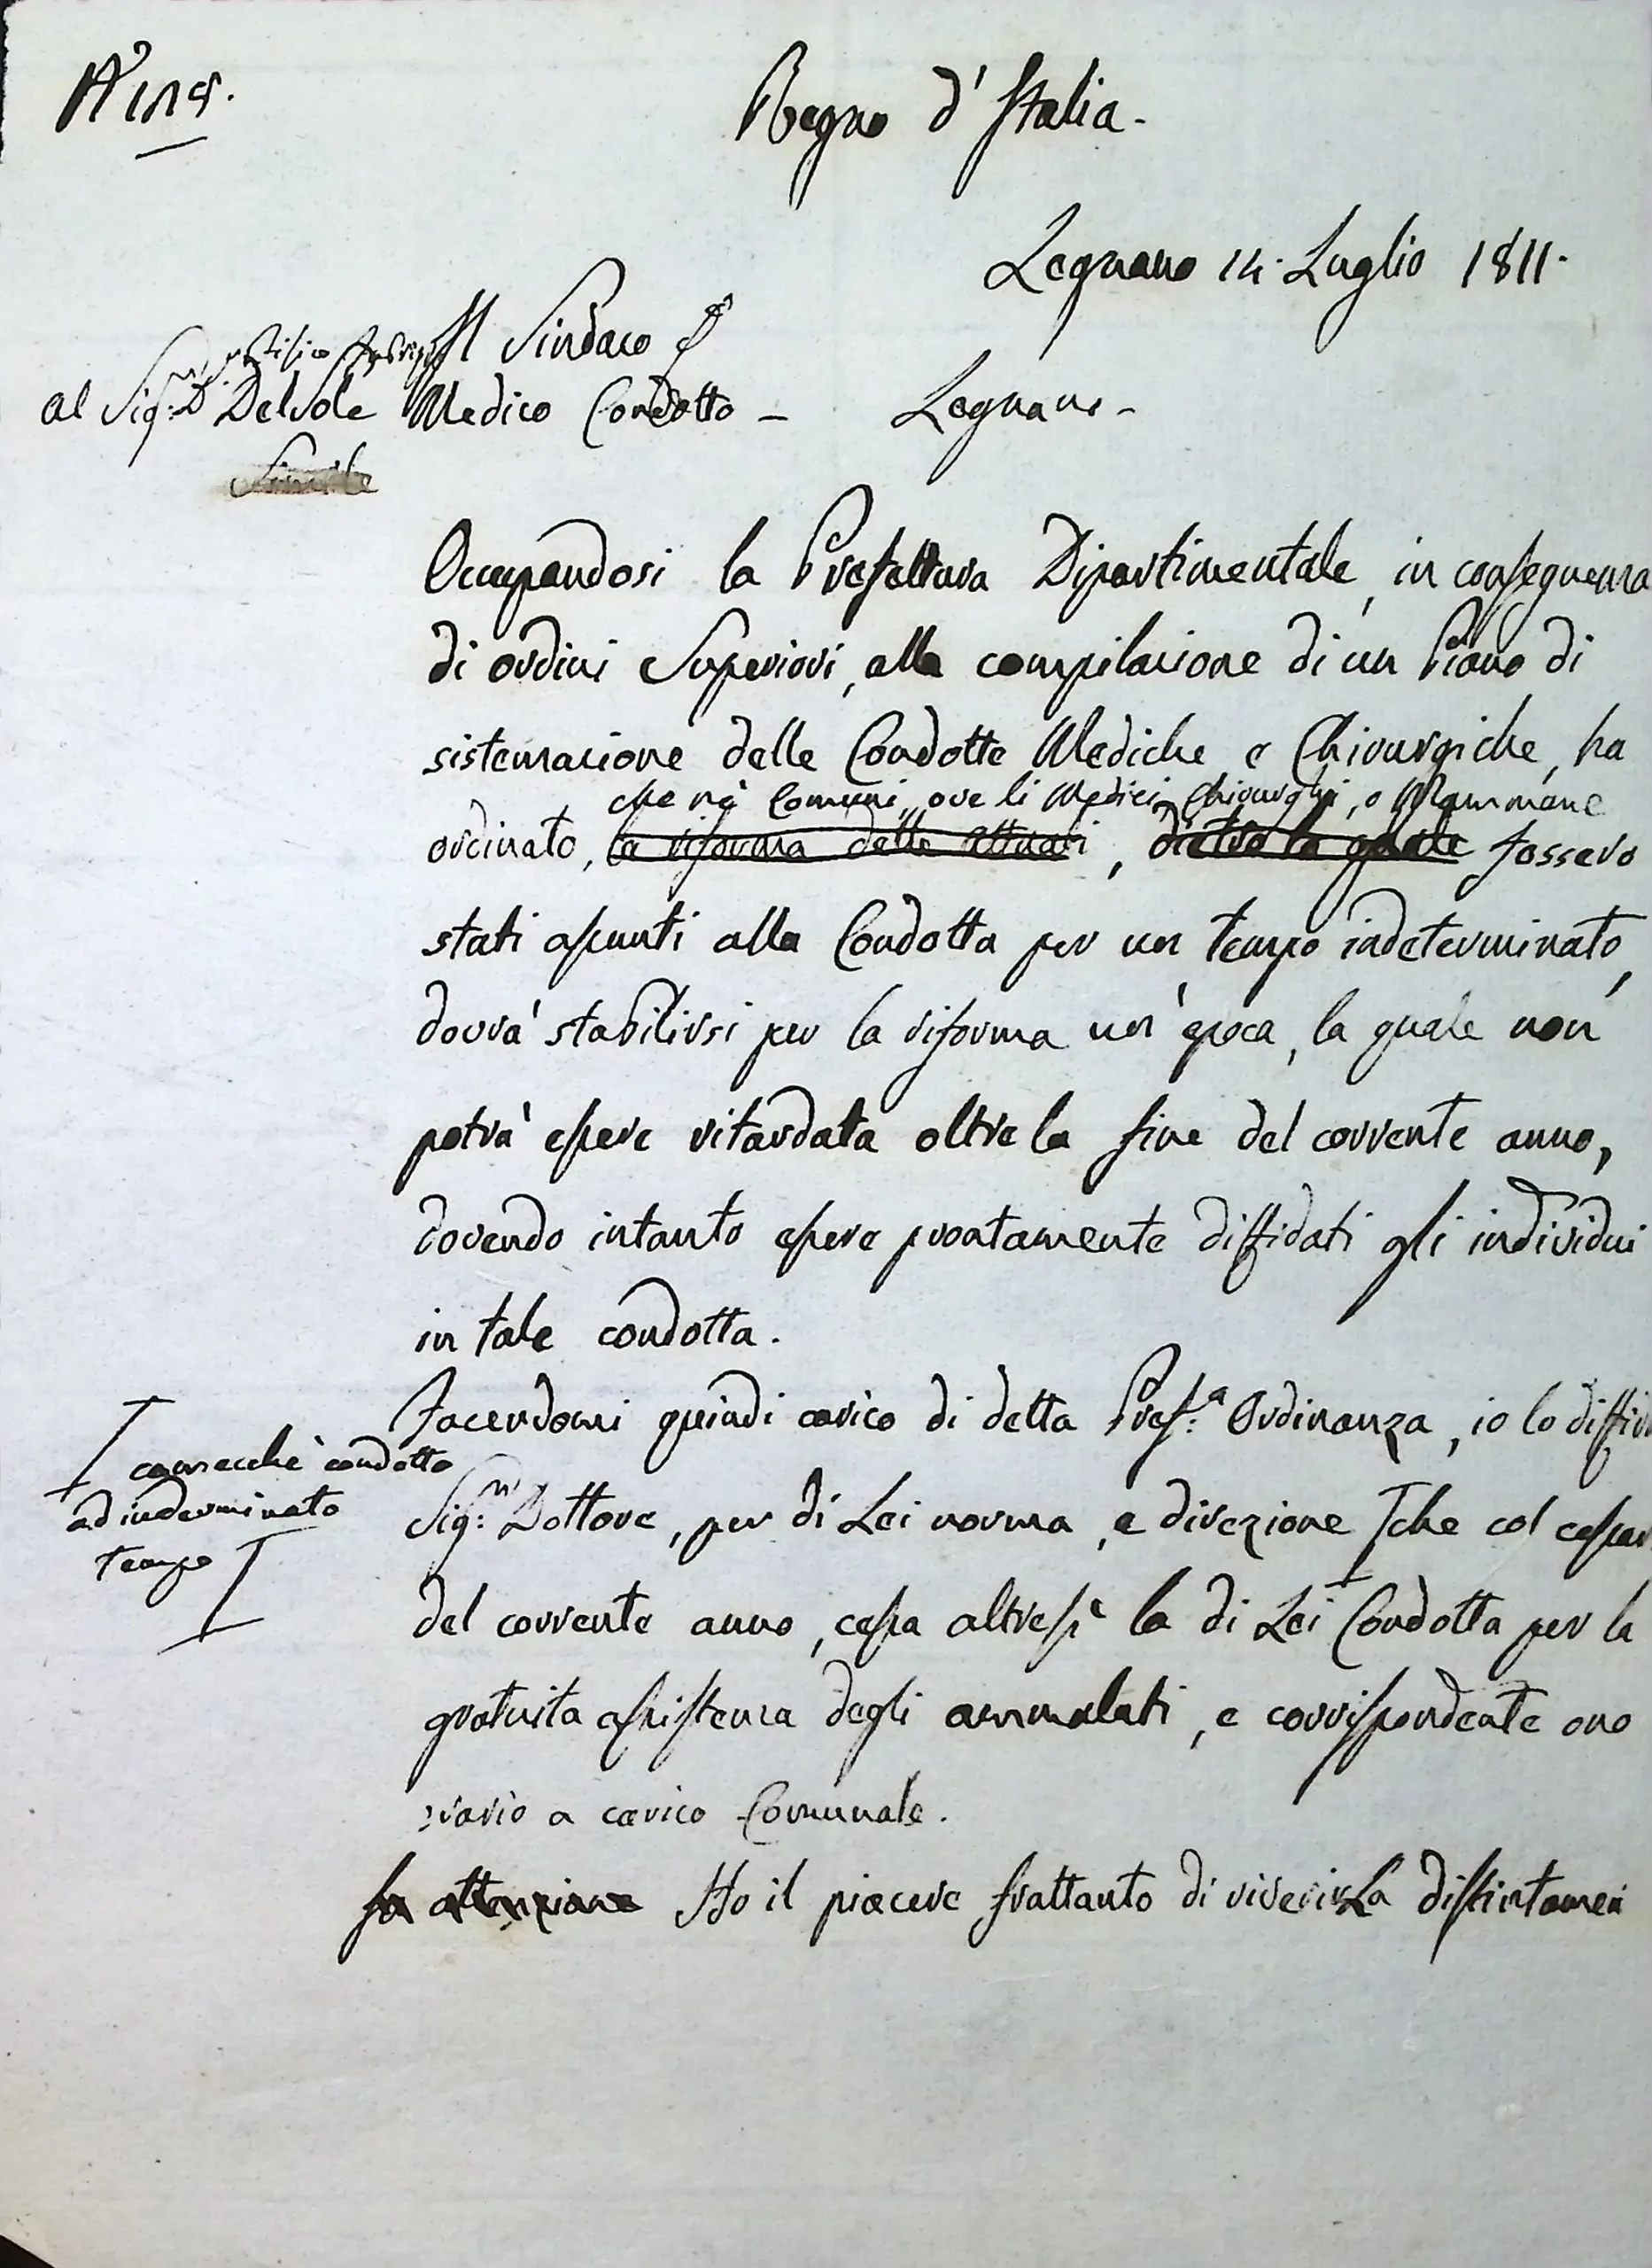 Regno d'Italia.
Legnano 14. Luglio 1811.
Il Sindaco
al Sig:r D. Delsole Medico Condotto - Legnano -
Occupandosi la Prefettura Dipartimentale, in conseguenza
di ordini Superiori, alla compilazione di un Piano di
sistemazione delle Condotte Mediche e Chirurgiche, ha
che nè Comuni, ove li Medici, Chirurghi, o Mammane
ordinato, la riforma delle attuali, dietro la quale fossero
stati assunti alla Condotta per un tempo indeterminato,
dovrà stabilirsi per la riforma un'epoca, la quale non
potrà essere ritardata oltre la fine del corrente anno,
dovendo intanto essere prontamente diffidati gli individui
in tale condotta.
Facendomi quindi carico di detta Pref:a Ordinanza, io lo diffi
comecchè condotto
ad inderminato
tempo
Sig:r Dottore, per di Lei norma, e direzione che col cessar
del corrente anno, cessa altresì la di Lei Condotta per la
gratuita assistenza degli ammalati, e corrispondente ono
rario a carico Comunale.
Ho il piacere frattanto di riverirLa distintamen